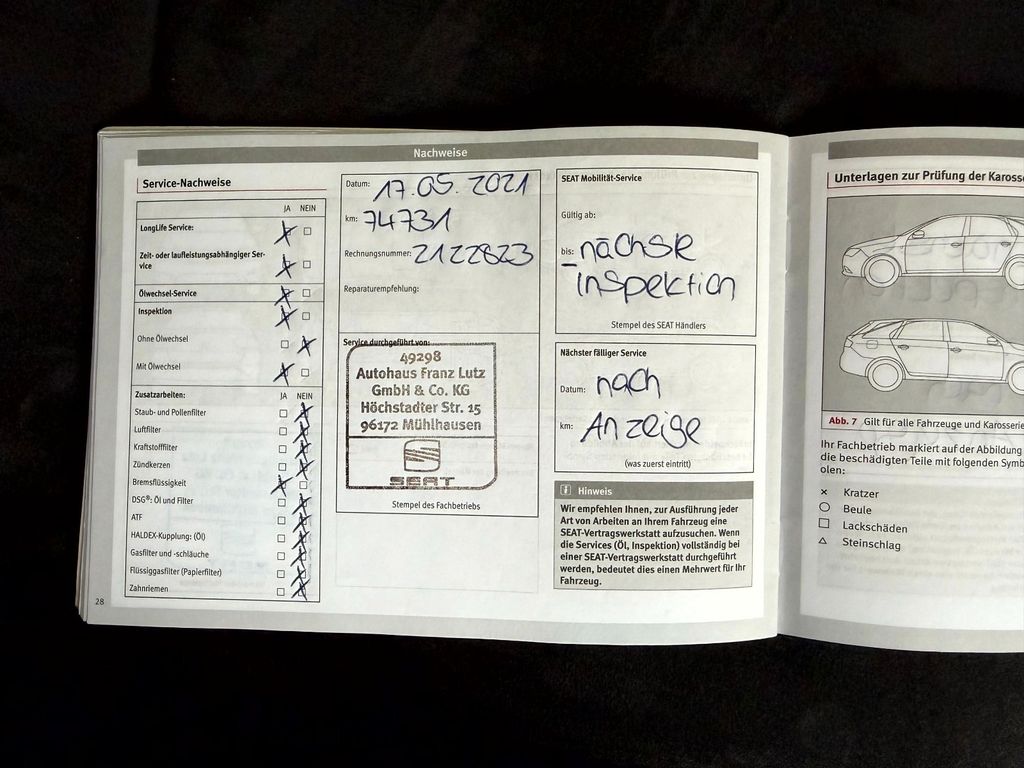 Nachweise
Service-Nachweise
JA NEIN
LongLife Service:
Zeit- oder laufleistungsabhängiger Ser-
vice
Ölwechsel-Service
Inspektion
Ohne Ölwechsel
Mit Ölwechsel
Zusatzarbeiten: JA NEIN
Staub- und Pollenfilter
Luftfilter
Kraftstofffilter
Zündkerzen
Bremsflüssigkeit
DSG®: Öl und Filter
ATF
HALDEX-Kupplung: (Öl)
Gasfilter und -schläuche
Flüssiggasfilter (Papierfilter)
Zahnriemen
28
Datum: 17.05.2021
km: 74731
Rechnungsnummer: 2122823
Reparaturempfehlung:
Service durchgeführt von:
49298
Autohaus Franz Lutz
GmbH & Co. KG
Höchstadter Str. 15
96172 Mühlhausen
SEAT
Stempel des Fachbetriebs
SEAT Mobilität-Service
Gültig ab:
bis: nächste
Inspektion
Stempel des SEAT Händlers
Nächster fälliger Service
Datum: nach
km: Anzeige
(was zuerst eintritt)
i Hinweis
Wir empfehlen Ihnen, zur Ausführung jeder
Art von Arbeiten an Ihrem Fahrzeug eine
SEAT-Vertragswerkstatt aufzusuchen. Wenn
die Services (Öl, Inspektion) vollständig bei
einer SEAT-Vertragswerkstatt durchgeführt
werden, bedeutet dies einen Mehrwert für Ihr
Fahrzeug.
Unterlagen zur Prüfung der Kaross
Abb. 7 Gilt für alle Fahrzeuge und Karosserie
Ihr Fachbetrieb markiert auf der Abbildung
die beschädigten Teile mit folgenden Symb
olen:
Kratzer
Beule
Lackschäden
Steinschlag